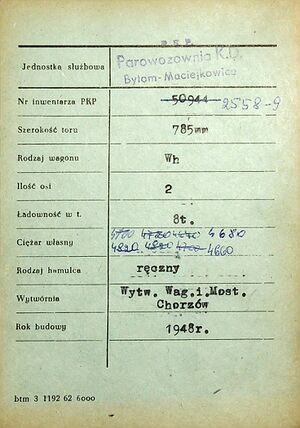 P.K.P.
Jednostka służbowa Parowozownia K.D.
Bytom-Maciejkowice
Nr inwentarza PKP 50944 2558-9
Szerokość toru 785mm
Rodzaj wagonu Wh
Ilość osi 2
Ładowność w t. 8t.
4700 4700 4640 4680
Ciężar własny 4820 4820 4700 4660
Rodzaj hamulca ręczny
Wytwórnia Wytw. Wag.i.Most.
Chorzów
Rok budowy 1948r.
btm 3 1192 62 6000